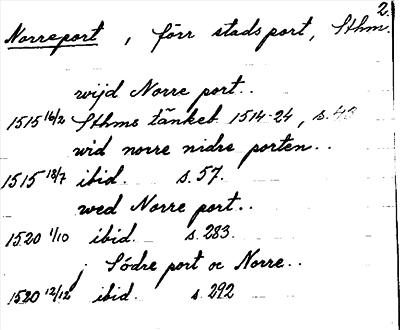 2.
Norreport, förr stadsport, Sthm.
wijd Norre port..
1515 16/2 Sthms tänkeb. 1514-24, s. 43
wid norre nidre porten..
1515 18/7 ibid. s. 57.
wed Norre port..
1520 1/10 ibid. s. 283.
j Södre port oc Norre..
1520 12/12 ibid. s. 292